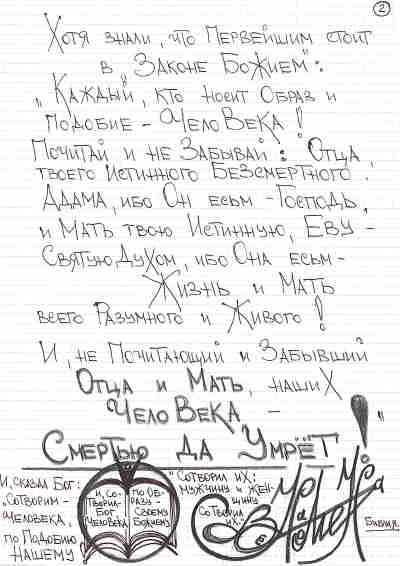 2
Хотя знали, что Первейшим стоит
в "Законе Божием":
"Каждый, кто носит Образ и
подобие - ЧелоВеКа!
Почитай и не Забывай: Отца,
твоего Истинного Безсмертного,
Адама, ибо Он есьм - Господь,
и Мать твою Истинную, Еву -
Святую Духом, ибо Она есьм -
Жизнь и Мать
всего Разумного и Живого!
И, не Почитающий и Забывший
Отца и Мать, наших
ЧелоВеКа -
Смертью да Умрёт!"
И, сказал Бог:
"Сотворим -
Человека,
по Подобию
Нашему
И, со-
творил
Бог
Человека
по Об-
разу
Своему
Божиему
"Сотворил их:
мужчину и жен-
щину
сотворил
их."
Библия